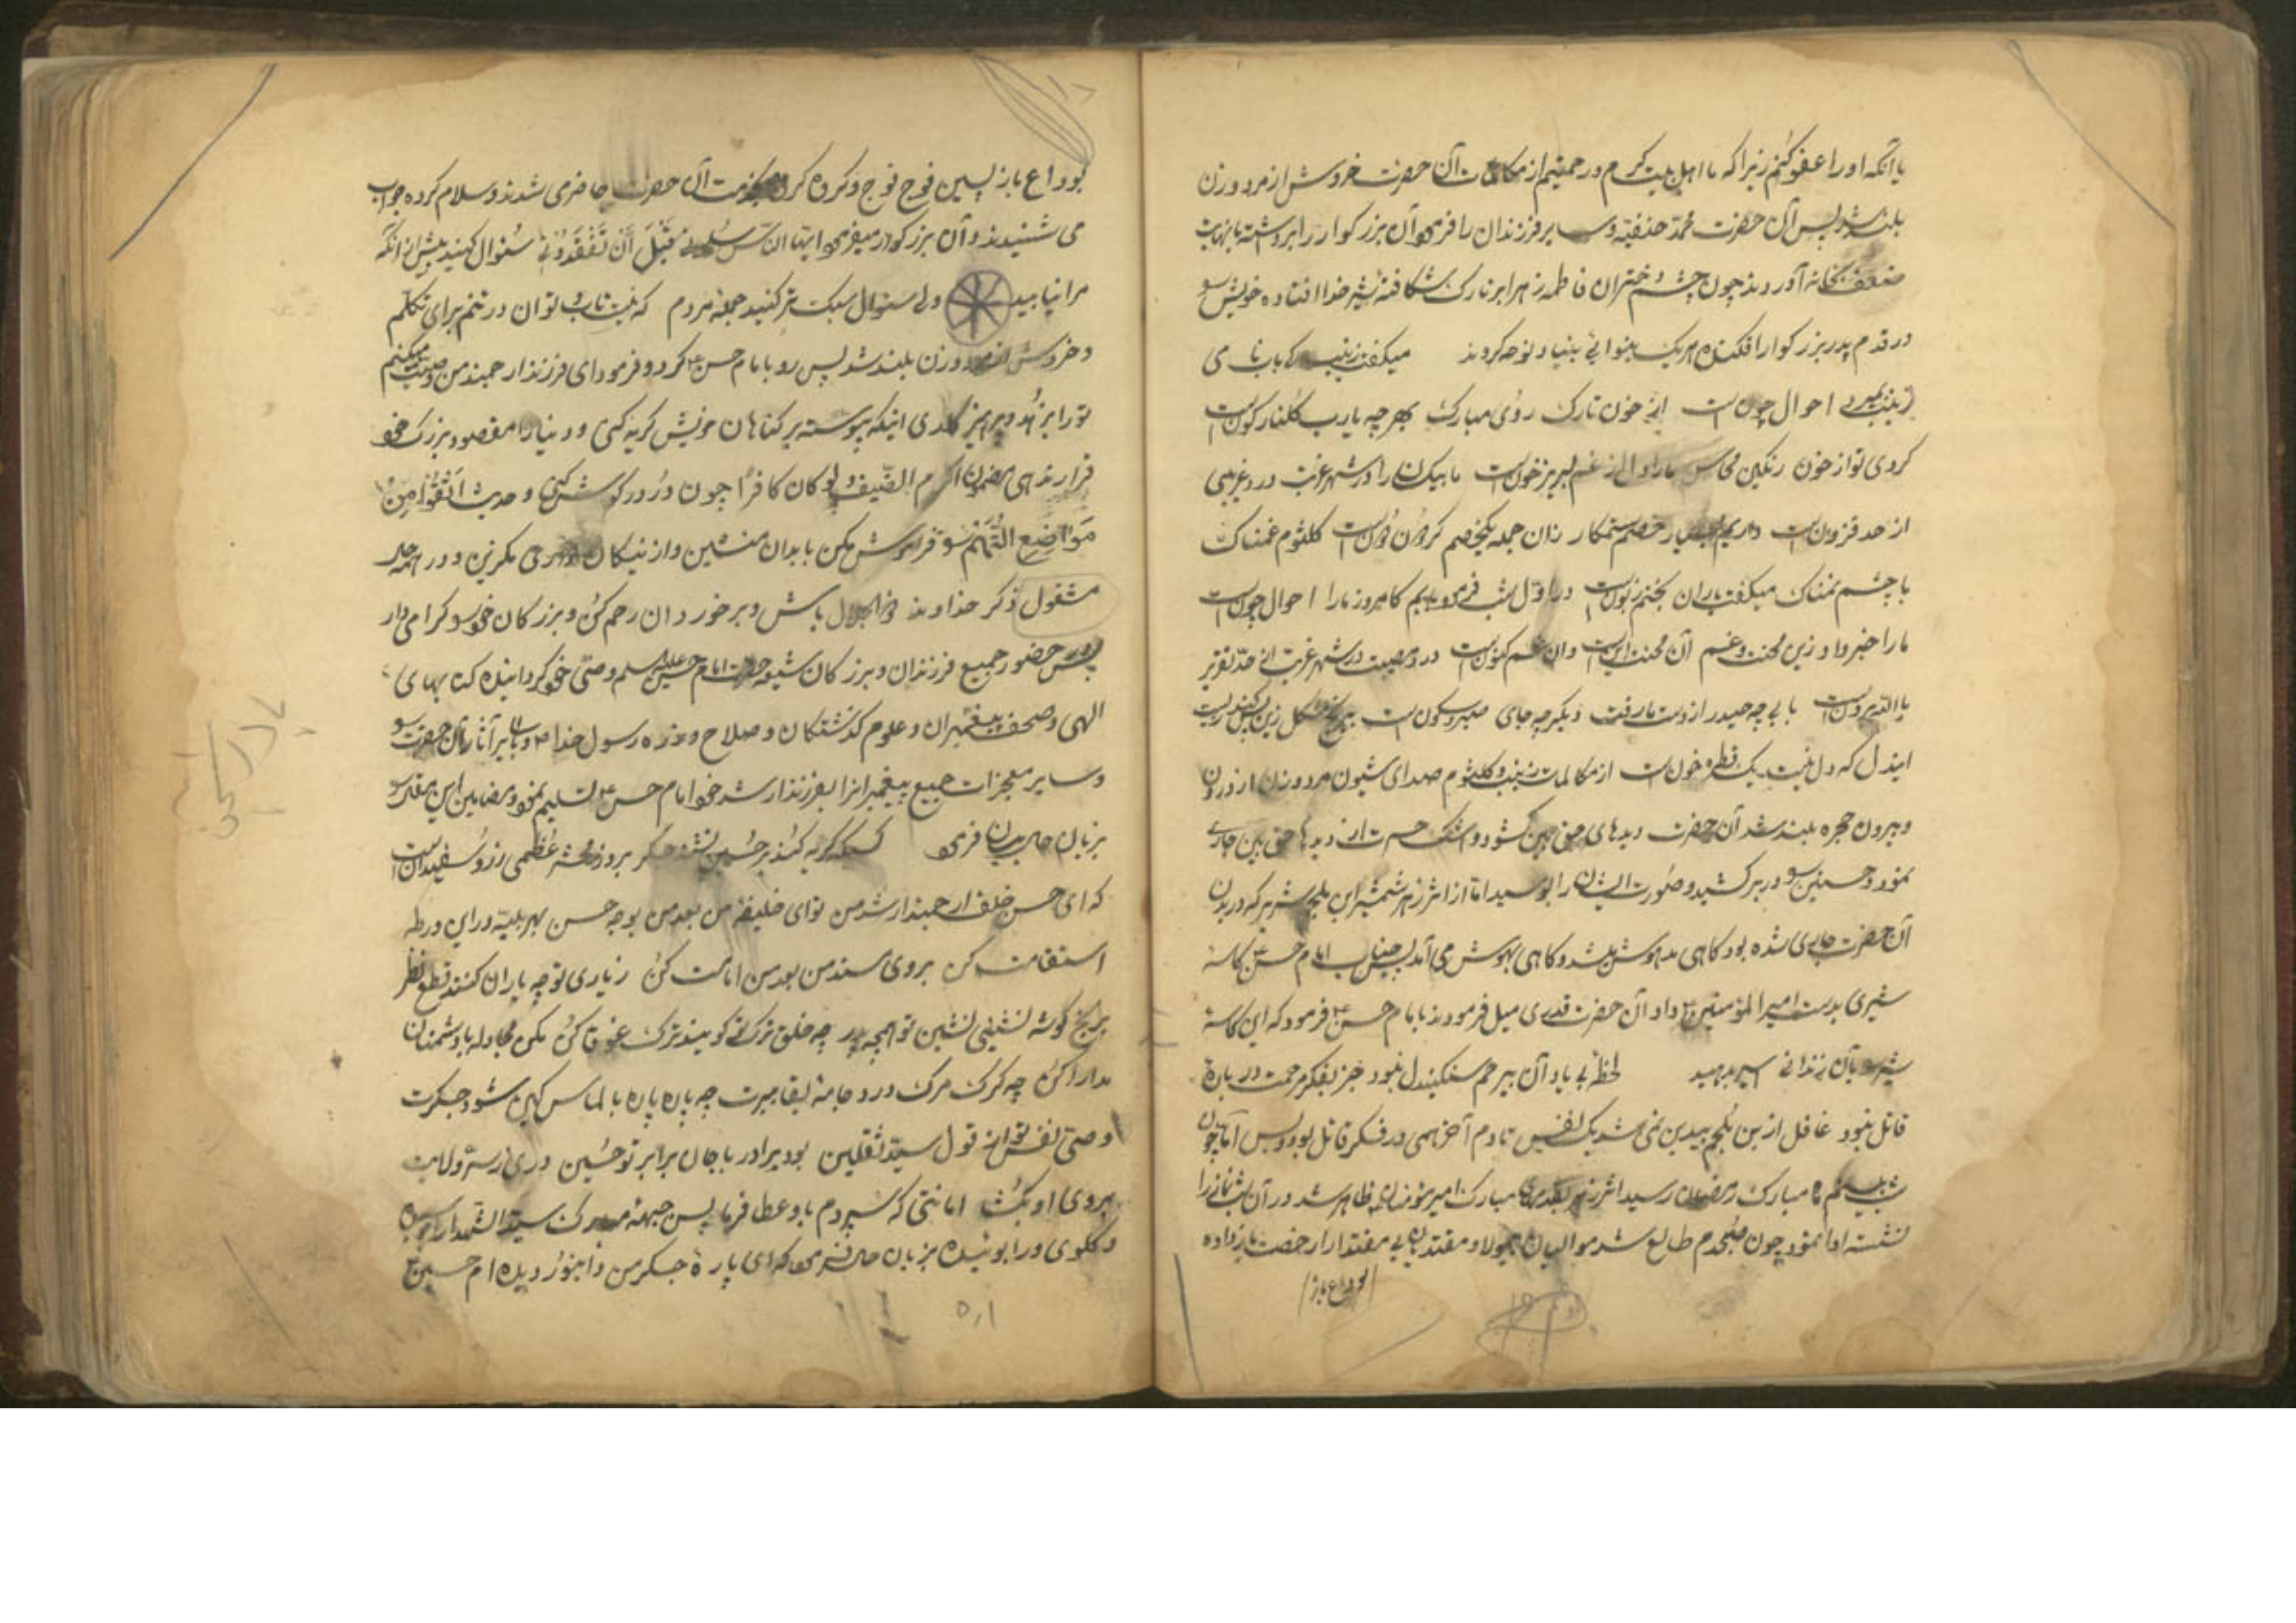 یا آنکه او را عفو کنم زیرا که ما اهل بیت کرم و رحمتیم از مکالمات آن حضرت خروش از مرد و زن
بلند شد پس آن حضرت محمد حنفیه و سایر فرزندان را فرمود آن بزرگوار را برداشته با نهایت
ضعف بخانه آوردند چون چشم دختران فاطمه زهرا بر تارک شکافته شیر خدا افتاده خویش سو
در قدم پدر بزرگوار افکنده هر یک بنوائی بنیاد نوحه کردند میگفت زینب کی باب نامی
زینب احوال چونست از خون تارک روی مبارک بهر چه یا رب گلنار گونست
کردی تو از خون رنگین محاسن ما را دل از غم لبریز خونست ما بیکسان را در شهر غربت درد غریبی
از حد فزونست داریم بسیار خصم ستمکار زنان جمله یکخصم گردون دونست کلثوم غمناک
با چشم نمناک میگفت یاران بختم زبونست در اول شب فرمود بابم کامروز ما را احوال چونست
ما را خبر داد زین محنت و غم آن محنت اینست وان غم کنونست درد و مصیبت در شهر غربت از حد تقریر
یا الله برونست بابی چه حیدر از دست ما رفت دیگر چه جای صبر و سکونست
ایندل که دل نیست یک قطره خونست از مکالمات زینب و کلثوم صدای شیون مرد و زن از درون
و بیرون حجره بلند شد آن حضرت دیدهای حق بین گشود و اشک حسرت از دیدها حق بین جاری
نمود و حسنین سو در بر کشید و صورت ایشان را بوسید اما از اثر زهر شمشیر ابن ملجم شریر که در بدن
آن حضرت جاری شده بود گاهی مدهوش میشد و گاهی بهوش می آمد پس جناب امام حسن ع کاسه
شیری بدست امیر المؤمنین ع داد آن حضرت قدری میل فرمودند بامام حسن ع فرمود که این کاسه
شیر سو بآن زندانی اسیر بدهید لحظه بی یاد آن بیرحم سنگیندل نبود جز بفکر مرحمت در باره
قاتل نبود غافل از بن ملجم بیدین نمی شد یک نفس تا دم آخر همی در فکر قاتل بود و بس اما چون
شب بیستم ماه مبارک رمضان رسید اثر زهر بقدمهای مبارک امیر مؤمنان ظاهر شد در آن شب نماز را
نشسته ادا نمود چون صبحدم طالع شد موالیان مولا و مقتدای بی مقتدا را رخصت باز داده
بوداع باز
بوداع باز پسین فوج فوج و گروه گروه بخدمت آن حضرت حاضری شدند و سلام کرده جواب
می شنیدند و آن بزرگوار میفرمود ایها الناس سلونی قبل أن تفقدونی سئوال کنید پیش از آنکه
مرا نیابید ولی سئوال سبک تر کنید جمله مردم که نیست تاب و توان در تنم برای تکلم
و خروش از مرد و زن بلند شد پس رو بامام حسن ع کرد و فرمود ای فرزند ارجمند من وصیت میکنم
تو را بزهد و پرهیزگاری اینکه پیوسته بر گناهان خویش گریه کنی و دنیا را مقصود بزرگ خود
قرار ندهی بمضمون اکرم الضیف و لو کان کافرا چون در در گوش کنی و حدیث اتقوا من
مواضع التهم سو فراموش مکن با بدان منشین و از نیکان دوری مگزین و در همه حال
مشغول ذکر خداوند ذو الجلال باش و بر خوردان رحم کن و بزرگان خود سو گرامی دار
پس حضور جمیع فرزندان و بزرگان شیعه حضرت امام حسن علیه السلم وصی خود گردانیده کتابهای
الهی و صحف پیغمبران و علوم گذشتگان و صلاح و زره رسول خدا ص و سایر آثار آن حضرت سو
و سایر معجزات جمیع پیغمبران را بفرزند ارشد خود امام حسن ع تسلیم نمود و مضامین این
بزبان حال بیان فرمود کسیکه گریه کند بر حسین تشنه جگر بروز محشر عظمی ز رو سفیدانست
که ای حسن خلف ارجمند ارشد من توای خلیفه من بعد من بوجه حسن بهر بلیه در این ورطه
استقامت کن بروی مسند من بعد من امامت کن ز یاری تو چه یاران کنند قطع نظر
بکنج گوشه نشینی نشین تو همچه پدر چه خلق ترک تو گویند ترک غوغا کن مکن مجادله با دشمنان
مدارا کن چه گرگ مرگ درد جامه بقا ببرت چه پاره پاره بالماس کین شود جگرت
وصی نفس تو از قول سید ثقلین بود برادر با جان برابر تو حسین دری ز ستر ولایت
بروی او بگشا امانتی که سپردم باو عطا فرما پس جبهه مبارک سید الشهدا را بوسیده
و گلوی ورا بوئیده بزبان حال فرمود که ای پاره جگر من و ای نور دیده ام حسین ع